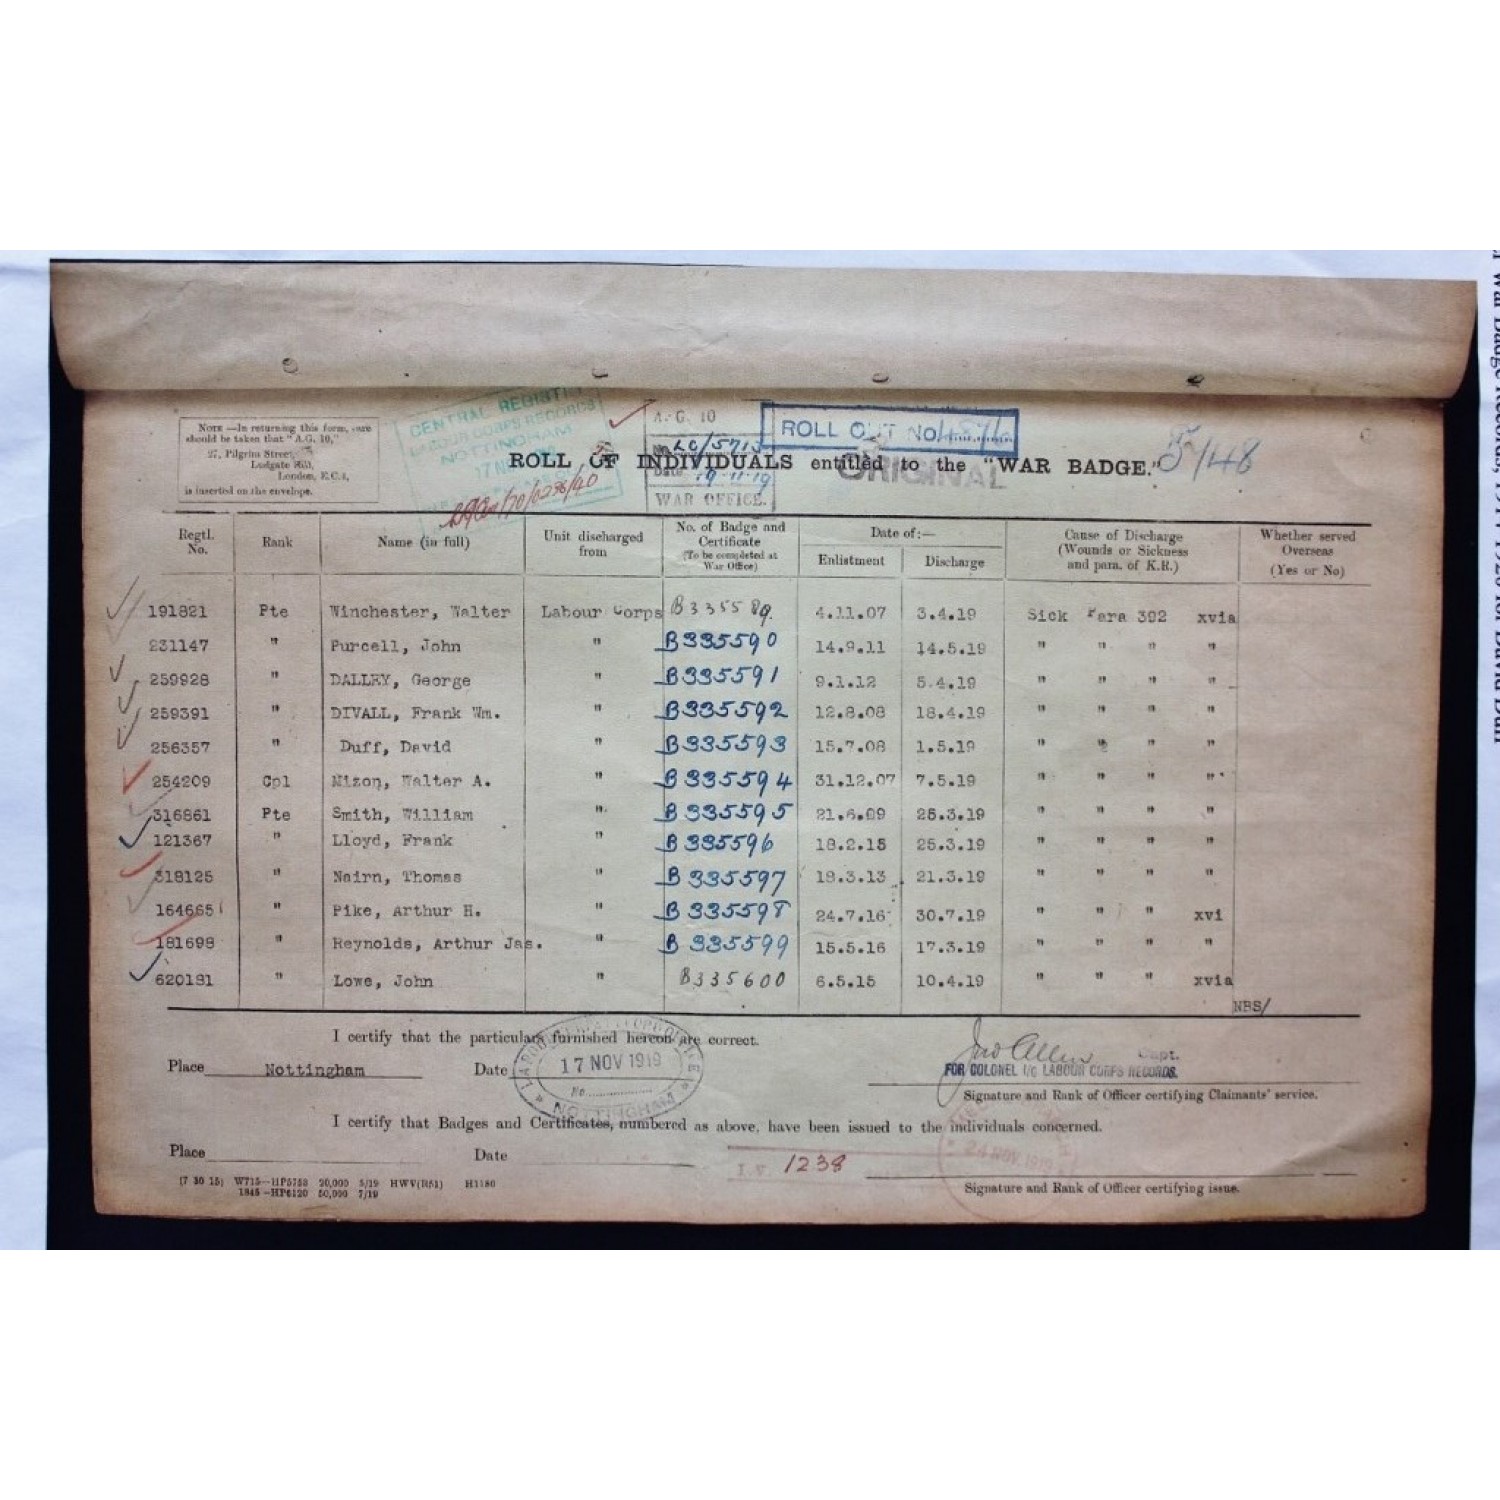 NOTE —In returning this form, care
should be taken that "A.G. 10,"
27, Pilgrim Street,
Ludgate Hill,
London, E.C.4,
is inserted on the envelope.
CENTRAL REGISTRY
LABOUR CORPS RECORDS
NOTTINGHAM
17 NOV
A.G. 10
No. LC/5713
Date 19-11-19
WAR OFFICE.
ROLL OUT NO
ORIGINAL
5/48
ROLL OF INDIVIDUALS entitled to the "WAR BADGE."
Regtl. No. Rank Name (in full) Unit discharged from No. of Badge and Certificate (To be completed at War Office) Date of:— Enlistment Discharge Cause of Discharge (Wounds or Sickness and para. of K.R.) Whether served Overseas (Yes or No)
191821 Pte Winchester, Walter Labour Corps B335589. 4.11.07 3.4.19 Sick Para 392 xvia
231147 " Purcell, John " B335590 14.9.11 14.5.19 " " " "
259928 " DALLEY, George " B335591 9.1.12 5.4.19 " " " "
259391 " DIVALL, Frank Wm. " B335592 12.8.08 18.4.19 " " " "
256357 " Duff, David " B335593 15.7.08 1.5.19 " " " "
254209 Cpl Nizon, Walter A. " B335594 31.12.07 7.5.19 " " " "
316861 Pte Smith, William " B335595 21.6.09 25.3.19 " " " "
121367 " Lloyd, Frank " B335596 18.2.15 25.3.19 " " " "
318125 " Nairn, Thomas " B335597 19.3.13 21.3.19 " " " "
164665 " Pike, Arthur H. " B335598 24.7.16 30.7.19 " " " xvi
181698 " Reynolds, Arthur Jas. " B335599 15.5.16 17.3.19 " " " "
620131 " Lowe, John " B335600 6.5.15 10.4.19 " " " xvia
NBS/
I certify that the particulars furnished hereon are correct.
Place Nottingham Date 17 NOV 1919
No.
NOTTINGHAM
Jno Allen Capt.
FOR COLONEL I/C LABOUR CORPS RECORDS.
Signature and Rank of Officer certifying Claimants' service.
I certify that Badges and Certificates, numbered as above, have been issued to the individuals concerned.
Place Date
1238
24 NOV 1919
Signature and Rank of Officer certifying issue.
(7 30 15) W715—HP5750 20,000 5/19 HWV(R51) H1180
1845—HP6120 50,000 7/19